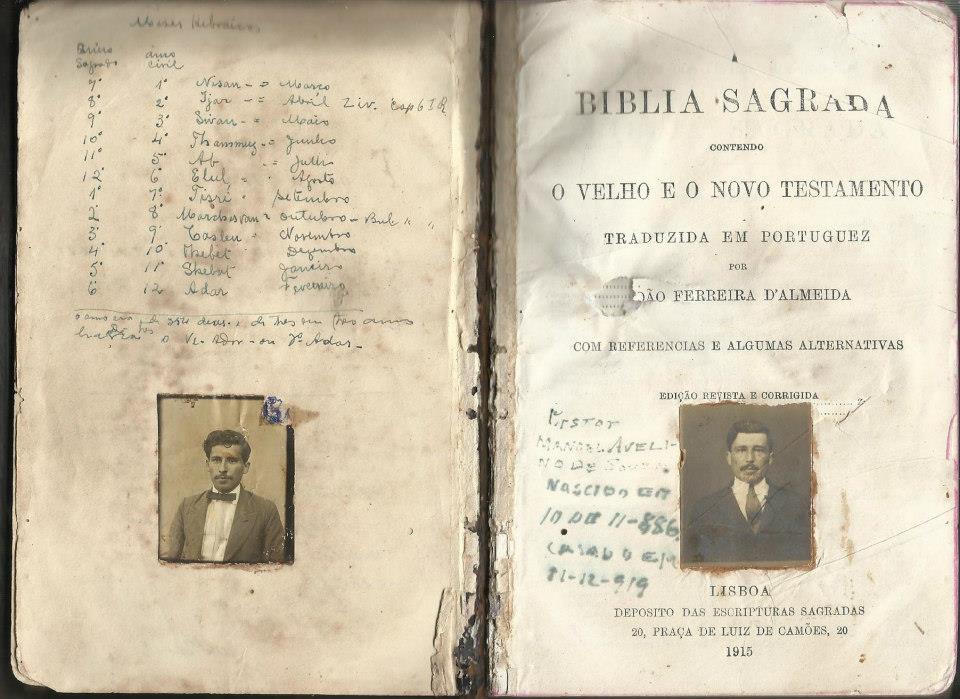 Mezes Hebraicos
Anno Sagrado anno civil
7º 1º Nisan - = Março
8º 2º Ijar - = Abril Liv. Cap 6 I R
9º 3º Sivan - = Maio
10º 4º Thammuz - = Junho
11º 5º Ab - = Julho
12º 6º Elul " " Agosto
1º 7º Tisri " Setembro
2º 8º Marchesvan = outubro - Bul " "
3º 9º Casleu = Novembro
4º 10º Thebet Dezembro
5º 11º Shebat Janeiro
6 12 Adar Fevereiro
o anno de 354 dias, de tres em tres annos
o Ve-Adar - ou 2º Adar -
A
BIBLIA SAGRADA
CONTENDO
O VELHO E O NOVO TESTAMENTO
TRADUZIDA EM PORTUGUEZ
POR
OÃO FERREIRA D'ALMEIDA
COM REFERENCIAS E ALGUMAS ALTERNATIVAS
EDIÇÃO REVISTA E CORRIGIDA
PASTOR
MANOEL AVELI-
NO DE SOUZA
NASCIDO EM
10 DE 11-886,
CASADO EM
31-12-919
LISBOA
DEPOSITO DAS ESCRIPTURAS SAGRADAS
20, PRAÇA DE LUIZ DE CAMÕES, 20
1915